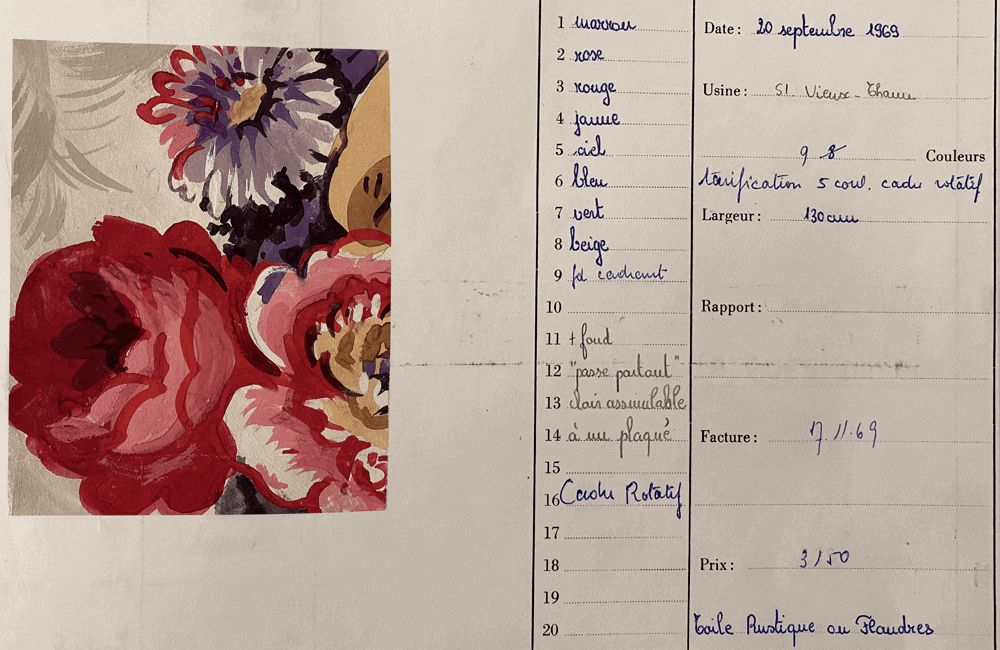 1 marron
2 rose
3 rouge
4 jaune
5 ciel
6 bleu
7 vert
8 beige
9 fd cachant
10
11 + fond
12 "passe partout"
13 clair assimilable
14 à un plaqué
15
16 Cadre Rotatif
17
18
19
20
Date : 20 septembre 1969
Usine : St Vieux-Thann
9 8 Couleurs
tarification 5 coul. cadre rotatif
Largeur : 130 cm
Rapport :
Facture : 17.11.69
Prix : 3/50
Toile Rustique ou Flandres